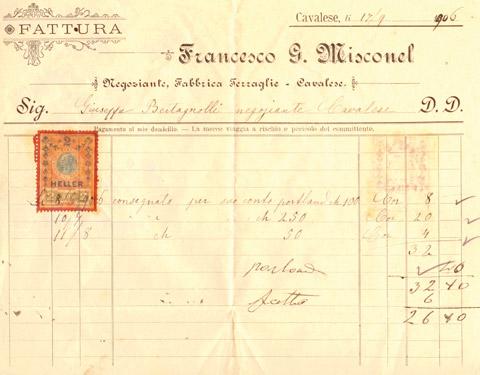 FATTURA
Cavalese, li 17/9 1906
Francesco G. Misconel
Negoziante, Fabbrica Ferraglie - Cavalese.
Sig. Giuseppe Bertagnolli negoziante Cavalese D. D.
Pagamento al mio domicilio. — La merce viaggia a rischio e pericolo del committente.
2
HELLER
consegnato per suo conto portland ch 100 Cor 8
10/ ch 250 Cor 20
11/8 ch 50 Cor 4
32
40
32 40
6
26 40